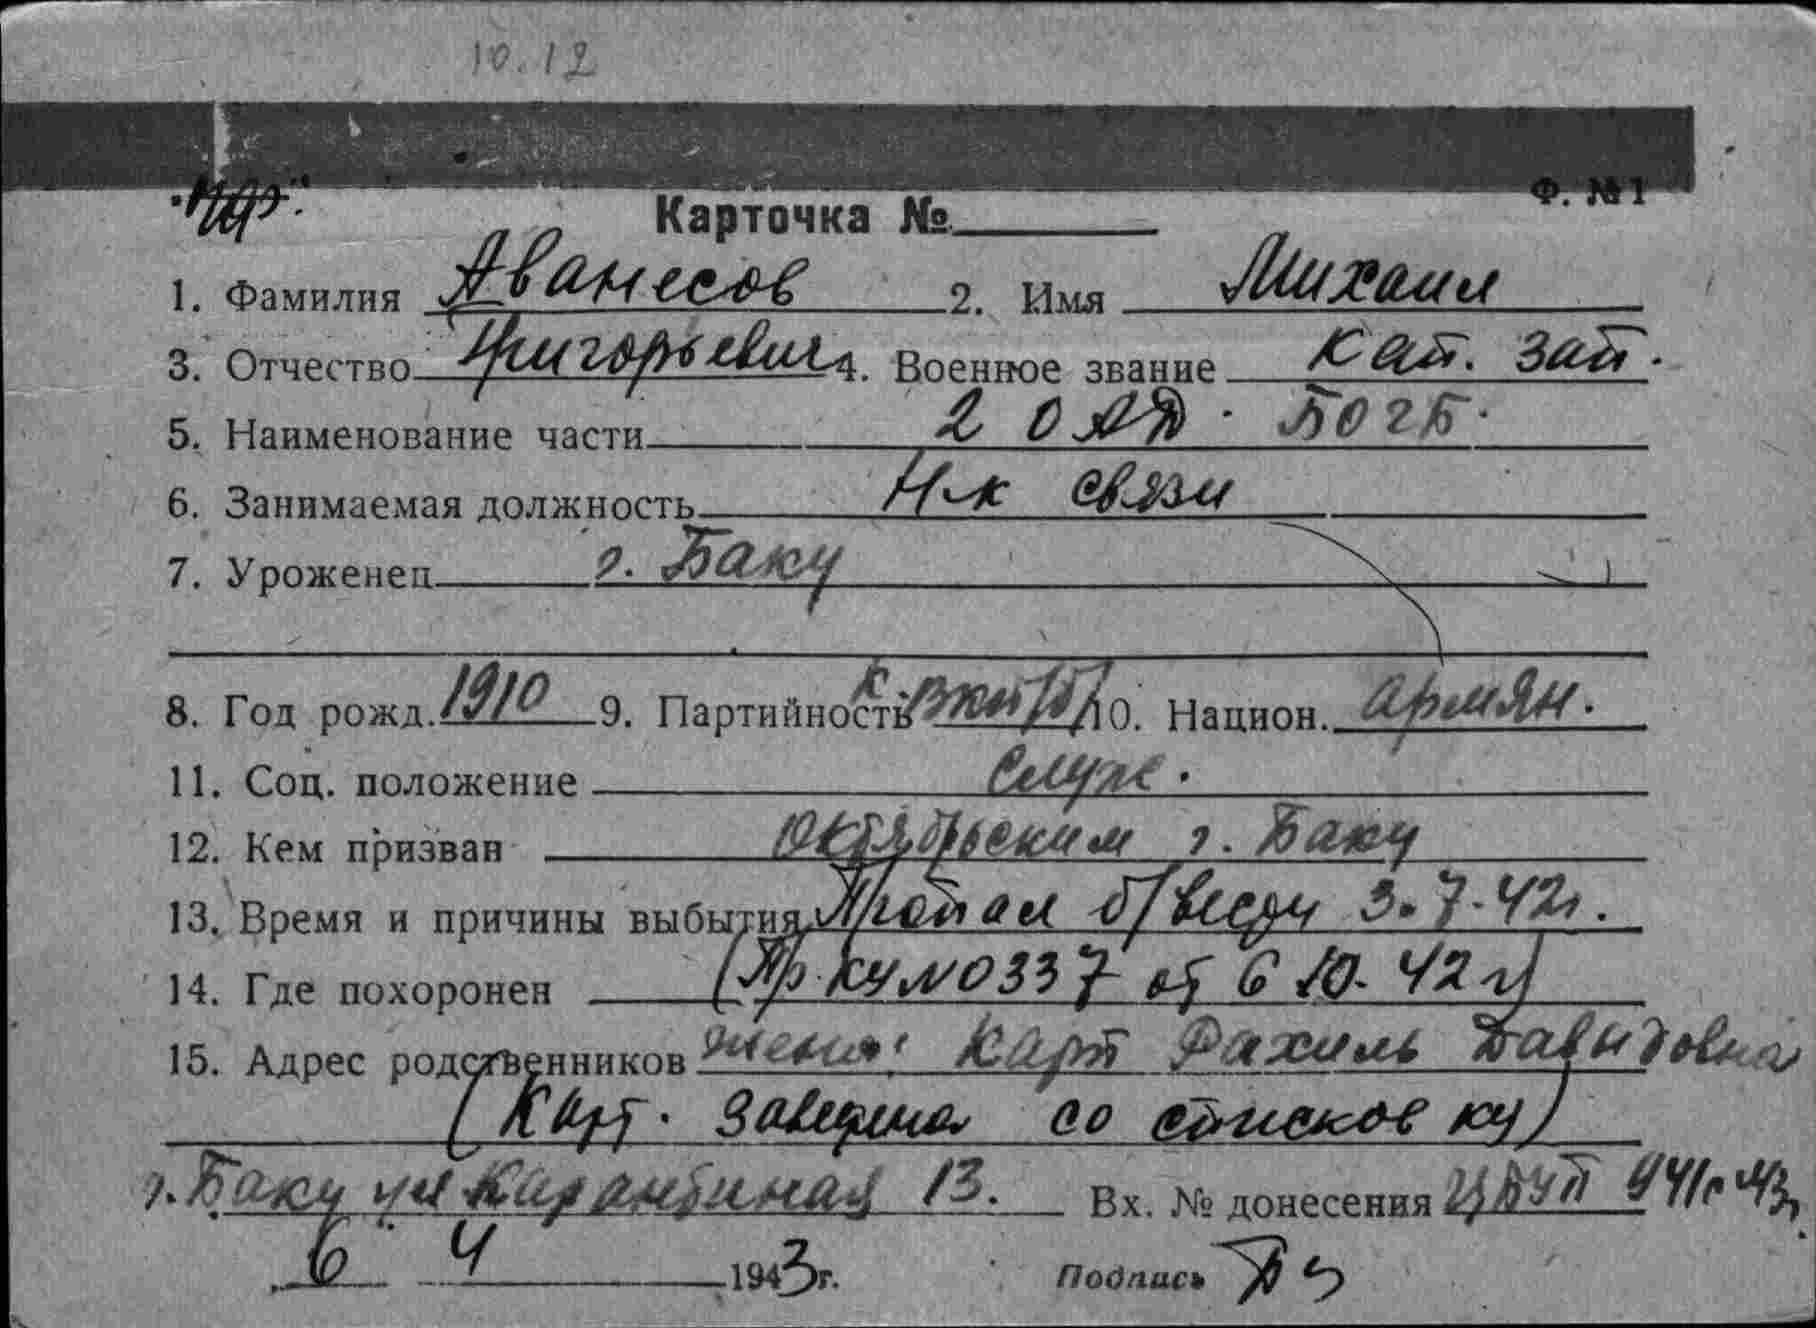 10.12
Ф. №1
Карточка №
1. Фамилия Аванесов 2. Имя Михаил
3. Отчество Григорьевич 4. Военное звание кап. зап.
5. Наименование части 2 ОАД. БОГБ.
6. Занимаемая должность Н-к связи
7. Уроженец г. Баку
8. Год рожд. 1910 9. Партийность к. ВКП/б/ 10. Национ. армян.
11. Соц. положение Служ.
12. Кем призван Октябрьским г. Баку
13. Время и причины выбытия Пропал б/вести 3.7.42г.
14. Где похоронен (Пр КУ № 0337 от 6 10.42 г)
15. Адрес родственников жена: Карт Рахиль Давидовна
(Карт. заведена со списков КУ)
г. Баку ул Карантинная 13. Вх. № донесения 441с 43г
6 4 1943г. Подпись